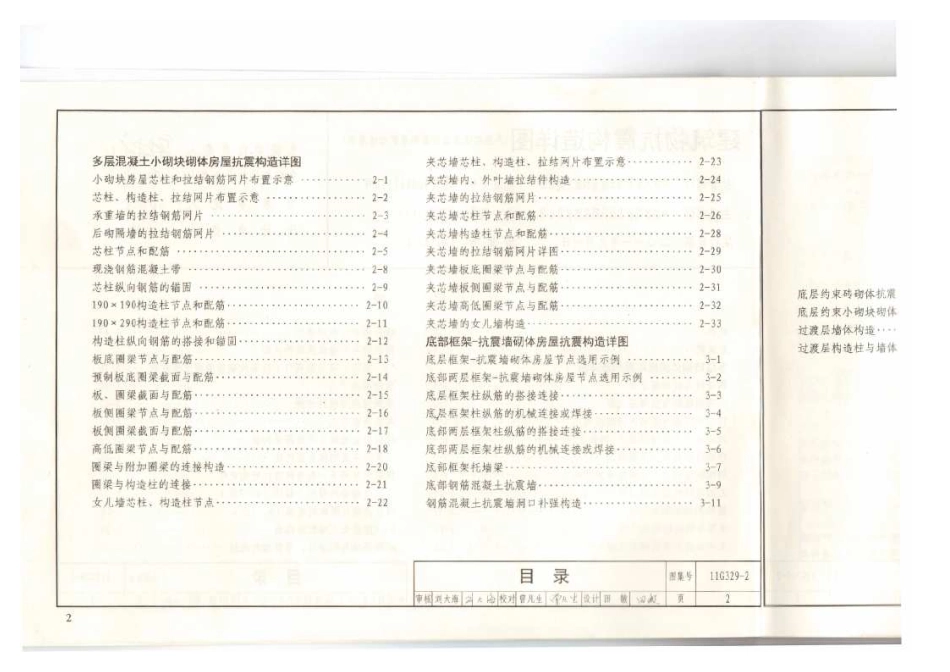 多层混凝土小砌块砌体房屋抗震构造详图
小砌块房屋芯柱和拉结钢筋网片布置示意 ………… 2-1
芯柱、构造柱、拉结网片布置示意 ………… 2-2
承重墙的拉结钢筋网片 ………… 2-3
后砌隔墙的拉结钢筋网片 ………… 2-4
芯柱节点和配筋 ………… 2-5
现浇钢筋混凝土带 ………… 2-8
芯柱纵向钢筋的锚固 ………… 2-9
190×190构造柱节点和配筋………… 2-10
190×290构造柱节点和配筋………… 2-11
构造柱纵向钢筋的搭接和锚固………… 2-12
板底圈梁节点与配筋………… 2-13
预制板底圈梁截面与配筋………… 2-14
板、圈梁截面与配筋………… 2-15
板侧圈梁节点与配筋………… 2-16
板侧圈梁截面与配筋………… 2-17
高低圈梁节点与配筋………… 2-18
圈梁与附加圈梁的连接构造………… 2-20
圈梁与构造柱的连接………… 2-21
女儿墙芯柱、构造柱节点………… 2-22
夹芯墙芯柱、构造柱、拉结网片布置示意………… 2-23
夹芯墙内、外叶墙拉结件构造………… 2-24
夹芯墙的拉结钢筋网片………… 2-25
夹芯墙芯柱节点和配筋………… 2-26
夹芯墙构造柱节点和配筋………… 2-28
夹芯墙的拉结钢筋网片详图………… 2-29
夹芯墙板底圈梁节点与配筋………… 2-30
夹芯墙板侧圈梁节点与配筋………… 2-31
夹芯墙高低圈梁节点与配筋………… 2-32
夹芯墙的女儿墙构造………… 2-33
底部框架-抗震墙砌体房屋抗震构造详图
底层框架-抗震墙砌体房屋节点选用示例 ………… 3-1
底部两层框架-抗震墙砌体房屋节点选用示例 ………… 3-2
底层框架柱纵筋的搭接连接………… 3-3
底层框架柱纵筋的机械连接或焊接………… 3-4
底部两层框架柱纵筋的搭接连接………… 3-5
底部两层框架柱纵筋的机械连接或焊接………… 3-6
底部框架托墙梁………… 3-7
底部钢筋混凝土抗震墙………… 3-9
钢筋混凝土抗震墙洞口补强构造………… 3-11
目 录 图集号 11G329-2
审核 刘大海 校对 曾凡生 设计 田 页 2
2
底层约束砖砌体抗震
底层约束小砌块砌体
过渡层墙体构造……
过渡层构造柱与墙体